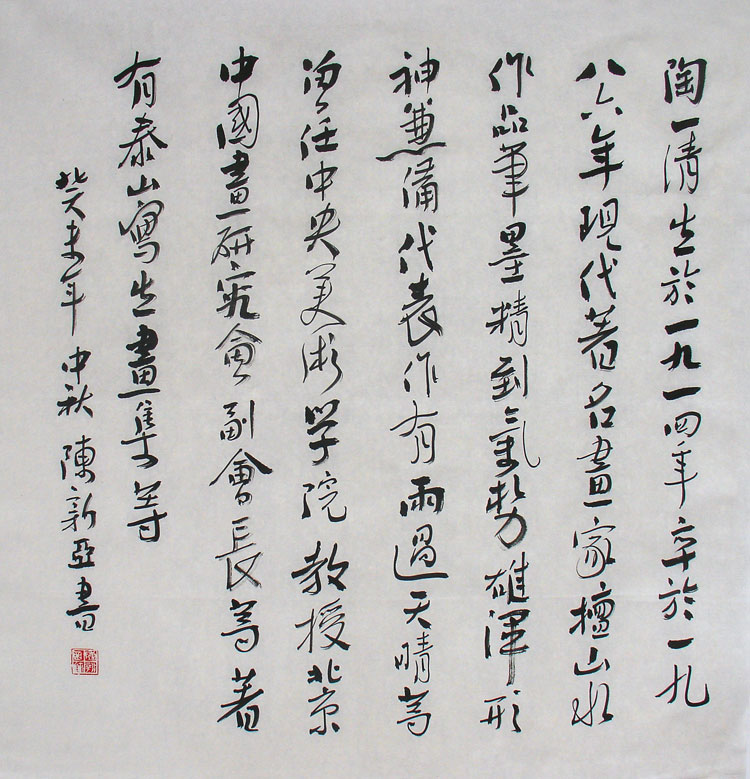 陶一清生於一九一四年卒於一九
八六年現代著名畫家擅山水
作品筆墨精到氣勢雄渾形
神兼備代表作有雨過天晴等
曾任中央美術学院教授北京
中國畫研究會副會長等著
有泰山寫生畫集等
癸未年中秋陳新亞書